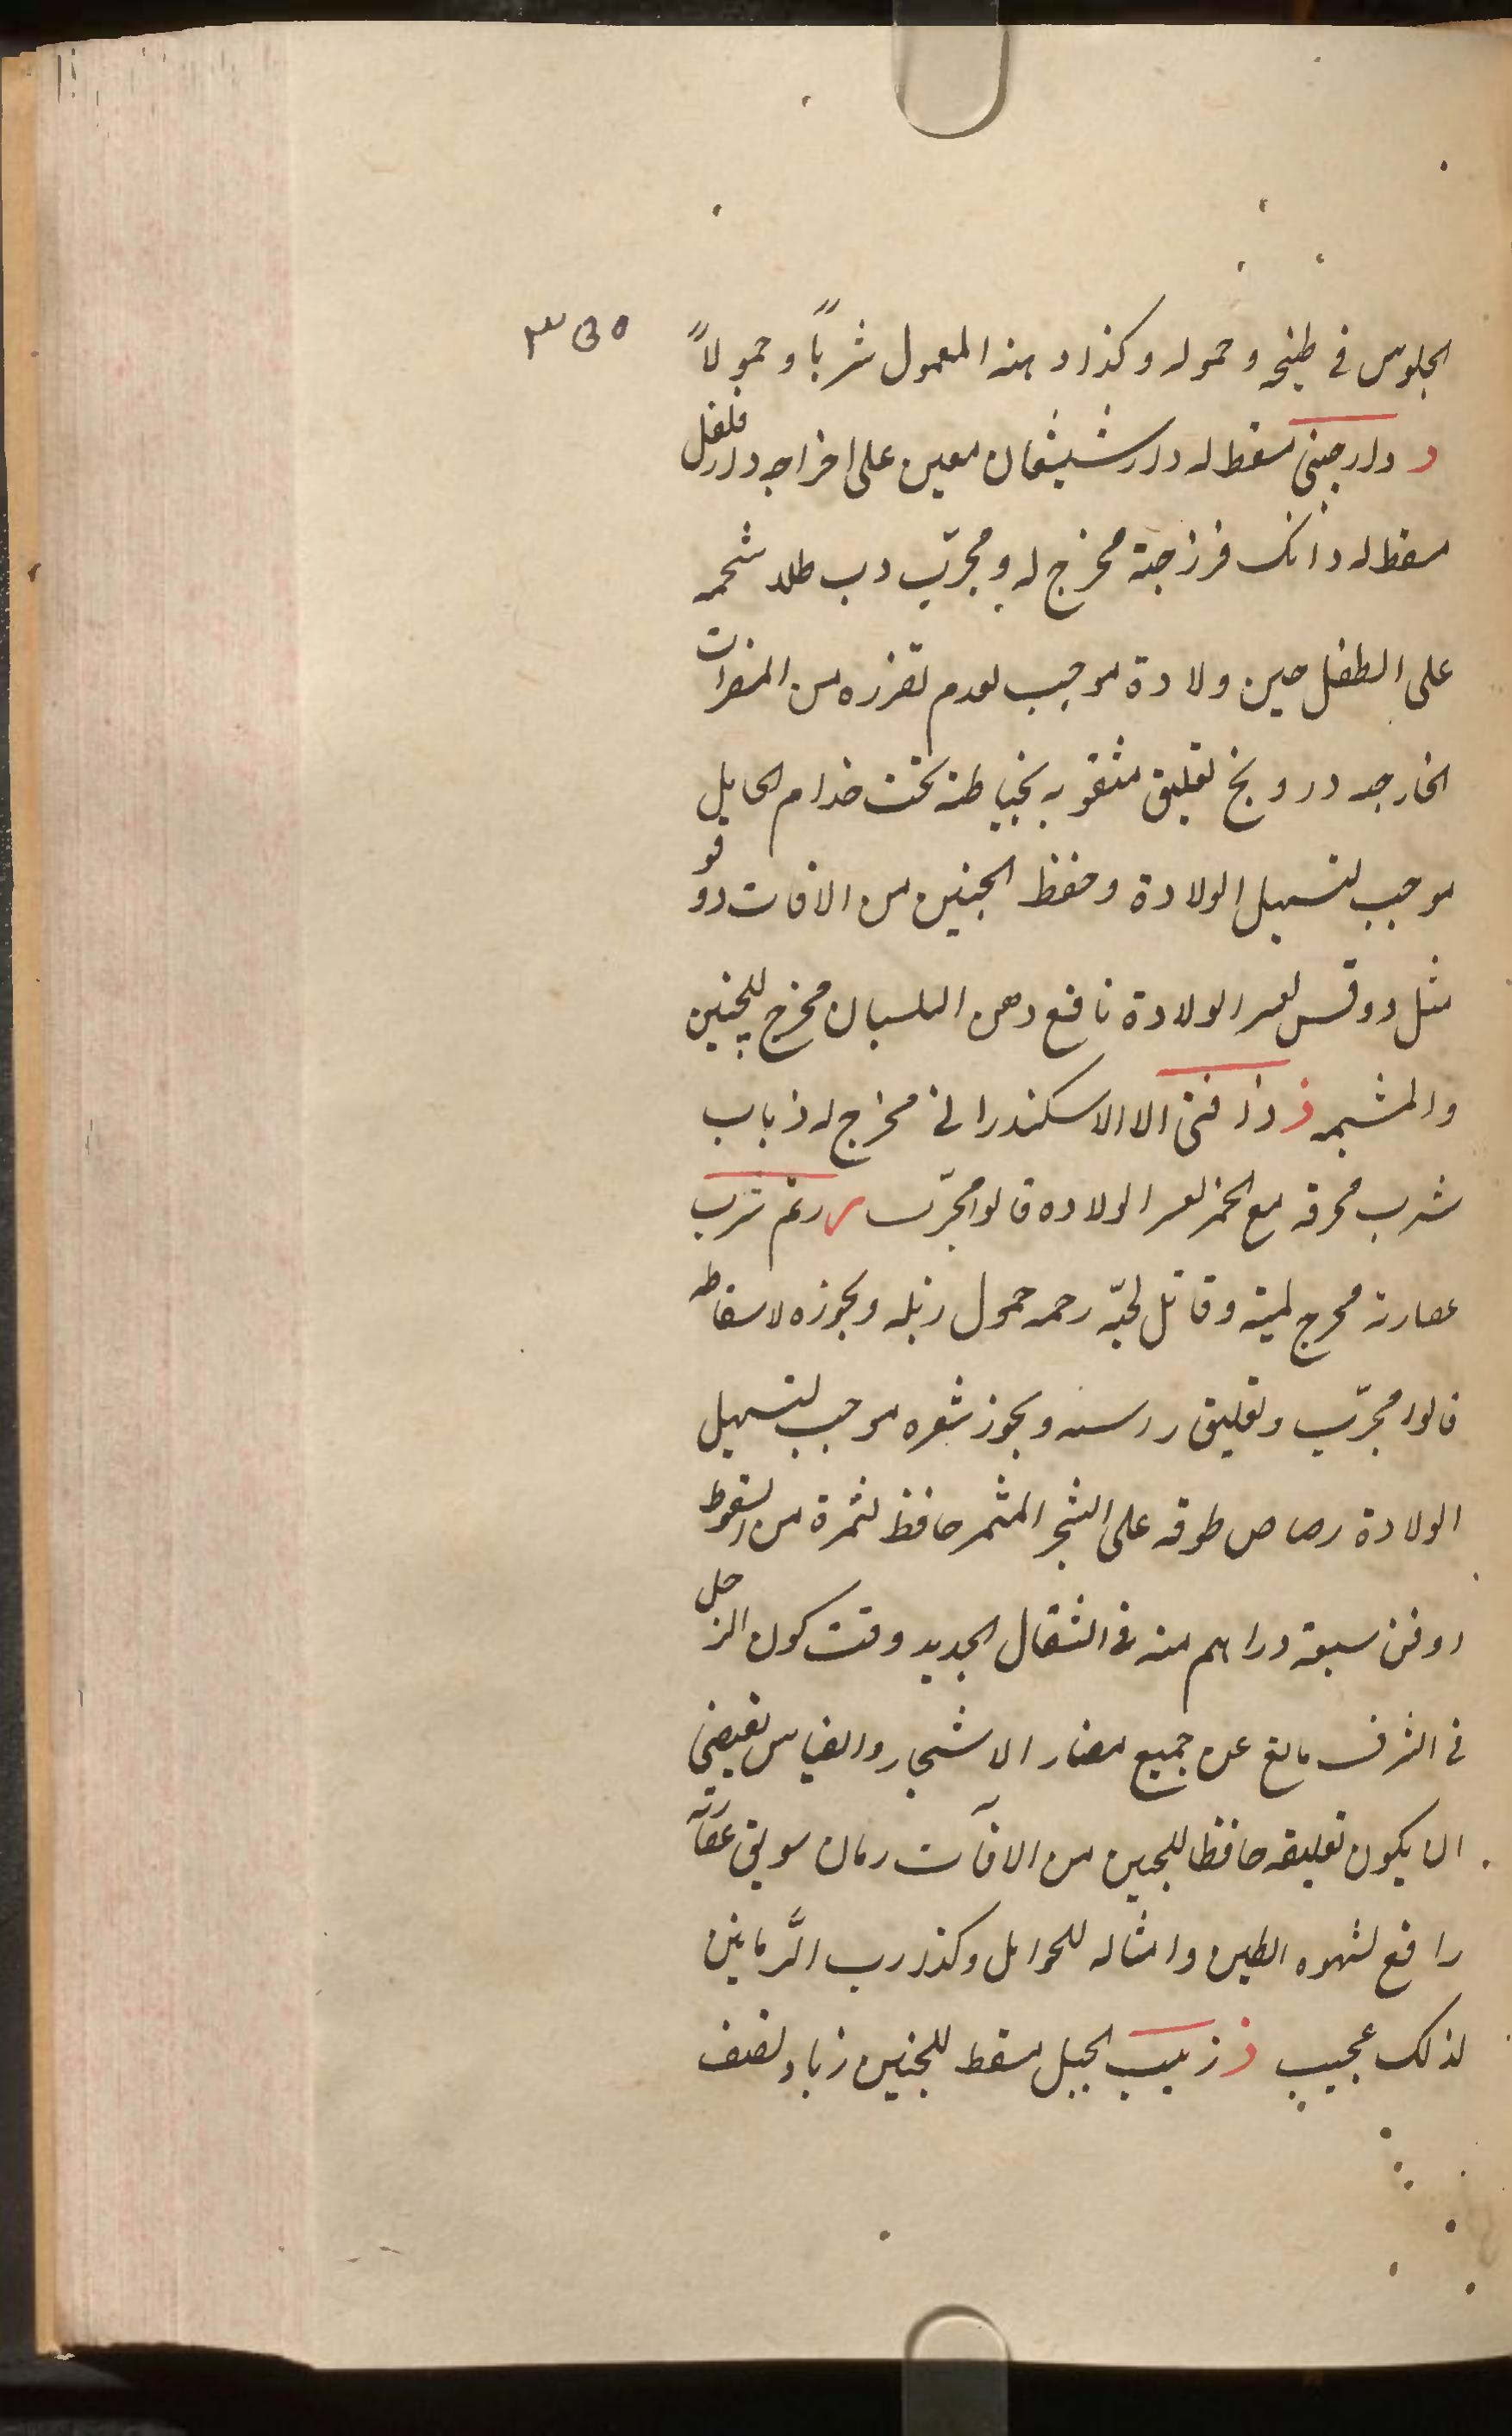 الجلوس في طبخه وحموله وكذا دهنه المعمول شرباً وحمولاً
د دارصيني مسقط له دارشيشعان معين على اخراجه دارفلفل
مسقط له دانك فرزجة مخرج له ومجرّب دب طلاء شحمه
على الطفل حين ولادة موجب لعدم تضرره من المضرات
الخارجه درونج تعليق مثقوبه بخياطة تحت خدام الحايل
موجب لتسهيل الولادة وحفظ الجنين من الافات دوقو
مثل دوقس لعسر الولادة نافع دهن البلسان مخرج للجنين
والمشيمه ذ ذافنى الاالاسكندرانى مخرج له ذباب
شرب محرقه مع الخمر لعسر الولاده قالوا مجرّب ر رتم شرب
عصارته مخرج لميته وقاتل لحيّه رحمه حمول زبله وبخوره لاسقاطه
قالوا مجرّب وتعليق رسنه وبخور شعره موجب لتسهيل
الولادة رصاص طوقه على الشجر المثمر حافظ لثمرة من السقوط
ودفن سبعة دراهم منه في الشقال الجديد وقت كون الزحل
في الشرف مانع عن جميع مضار الاشجار والقياس يقتضي
ان يكون تعليقه حافظا للجنين من الافآت رمان سويق عصارته
رافع لشهوه الطين وامثاله للحوامل وكذا رب الرّمانين
لذلك عجيب ز زبيب الجبل مسقط للجنين زباد لضعف